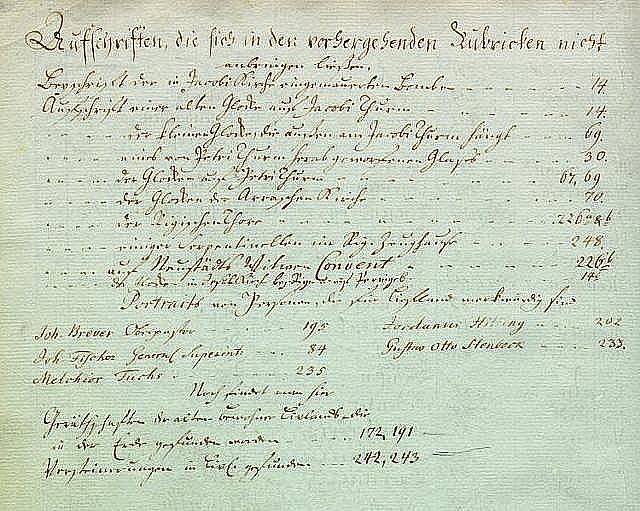 Aufschriften, die sich in den vorhergehenden Rubricken nicht
anbringen ließen.
Beyschrift der in Jacobi Kirche eingemauerten Bomben - - - 14.
Aufschrift einer alten Glocke auf Jacobi Thurm - - - 14.
- - - der kleinen Glocke, die außen am Jacobi Thurm hängt - - - 69.
- - - eines von Petri Thurm herab geworfenen Glases - - - 30.
- - - der Glocken auf Petri Thurm - - - 67, 69
- - - der Glocken der Kirche - - - 70.
- - - der Rigischen Thore - - - 226
- - - einiger im Rig. Zeughause - - - 248.
- - - auf Neustädts Witwen Convent - - - 226
Portraits von Personen die für Liefland merkwürdig sind
Joh. Brever Oberpastor - - - 195
Joh. Fischer General Superint - - - 84
Melchior Fuchs - - - 235
Jordanus - - - 202
Gustav Otto Stenbock - - - 233.
Noch findet man hier
Geräthschaften der alten Bewohner Livlands die
in der Erde gefunden worden - - - 172, 191
Versteinerungen in Livl. gefunden - - - 242, 243